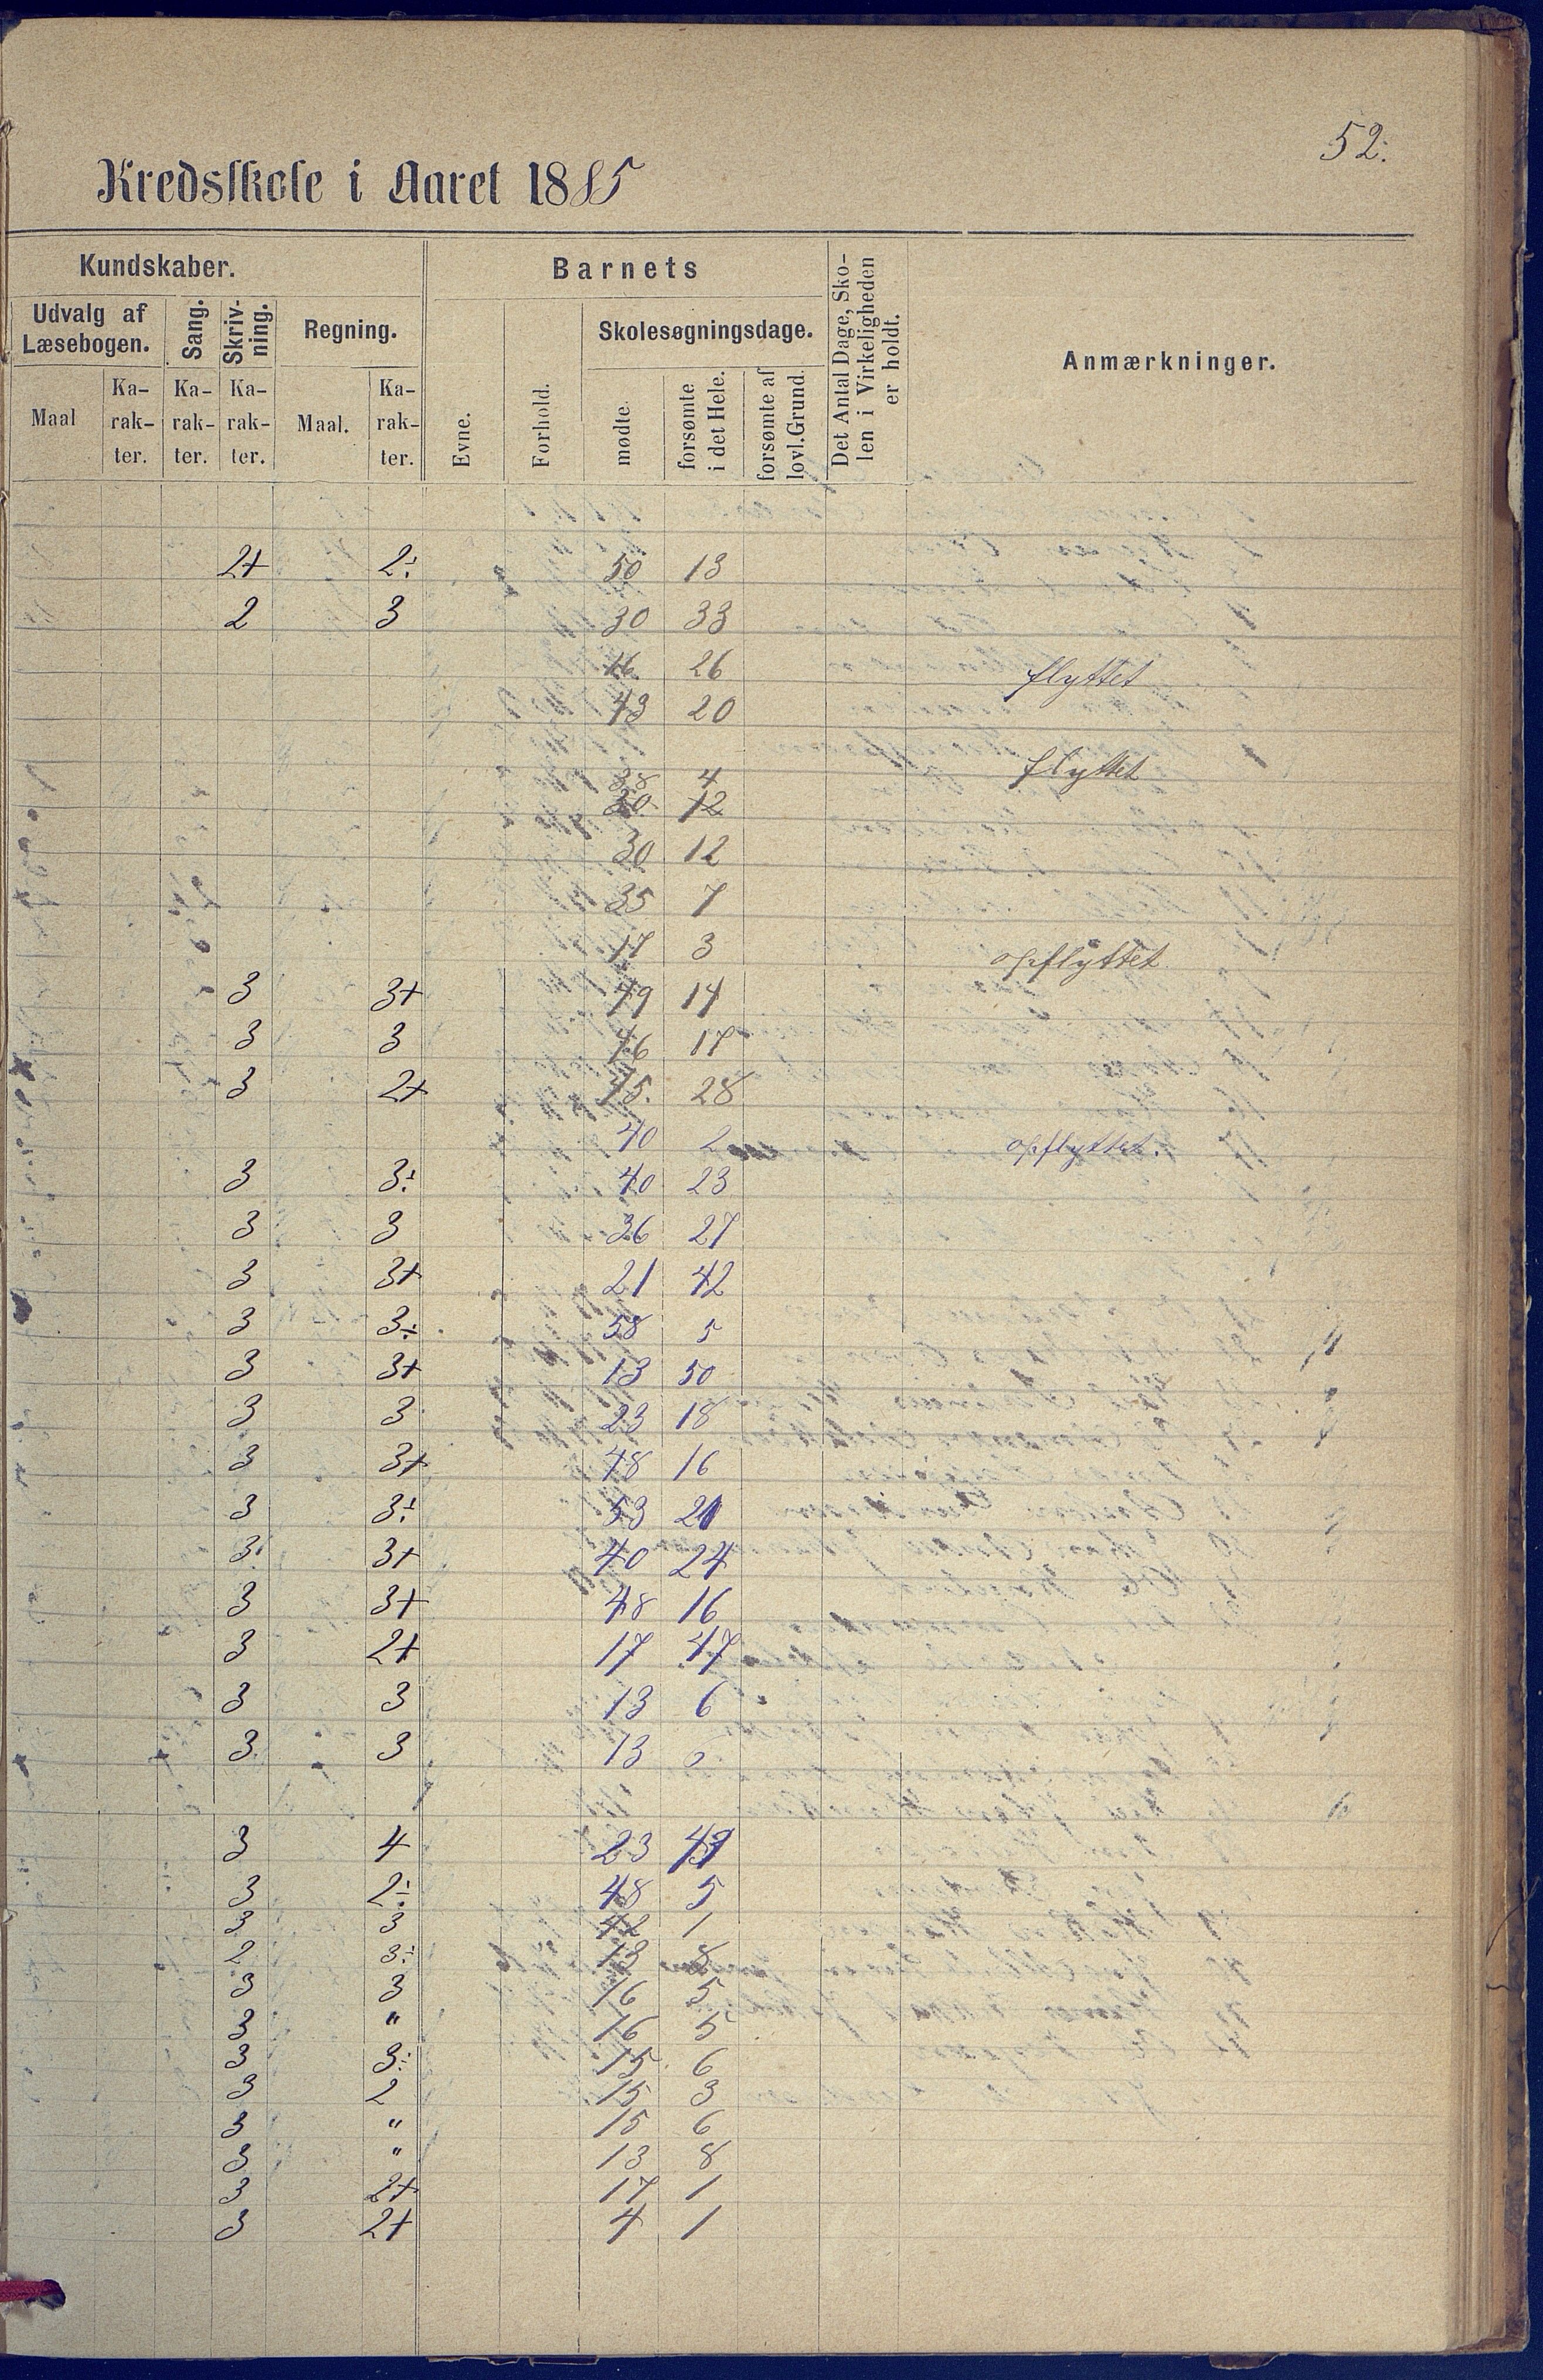 52.
Kredsskole i Aaret 1885
Kundskaber.
Barnets
Det Antal Dage, Sko-
len i Virkeligheden
er holdt.
Anmærkninger.
Udvalg af
Læsebogen.
Sang.
Skriv-
ning.
Regning.
Skolesøgningsdage.
Maal
Ka-
rak-
ter.
Ka-
rak-
ter.
Ka-
rak-
ter.
Maal.
Ka-
rak-
ter.
Evne.
Forhold.
mødte.
forsømte
i det Hele.
forsømte af
lovl. Grund.
2+ 2÷ 50 13
2 3 30 33
16 26 flyttet
43 20
38 4 flyttet
30 12
30 12
35 7
17 3 opflyttet
3 3+ 49 14
3 3 46 17
3 2+ 45. 28
40 2 opflyttet.
3 3÷ 40 23
3 3 36 27
3 3+ 21 42
3 3÷ 58 5
3 3+ 13 50
3 3 23 18
3 3+ 48 16
3 3÷ 53
3 3+ 40 24
3 3+ 48 16
3 2+ 17 47
3 3 13 6
3 3 13 6
3 4 23
3 2÷ 48 5
3 3 42 1
2 3÷ 13 8
3 3 16 5
3 " 16 5
3 3÷ 15 6
3 2 15 3
3 " 15 6
3 " 13 8
3 2+ 17 1
3 2+ 4 1